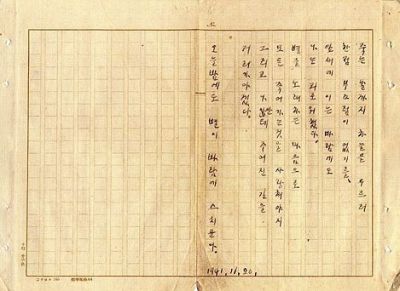 죽는 날까지 하늘을 우르러
한점 부끄럼이 없기를,
잎새에 이는 바람에도
나는 괴로워했다.
별을 노래하는 마음으로
모든 죽어가는것을 사랑해야지
그리고 나안테 주어진 길을
거러가야겠다.
오늘밤에도 별이 바람에 스치운다.
1941.11.20.